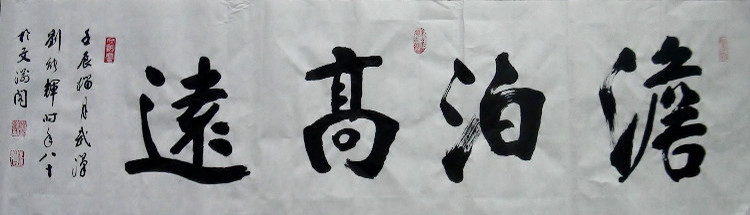 澹泊高遠
壬辰臘月武漢
劉 輝時年八十
於文 閣